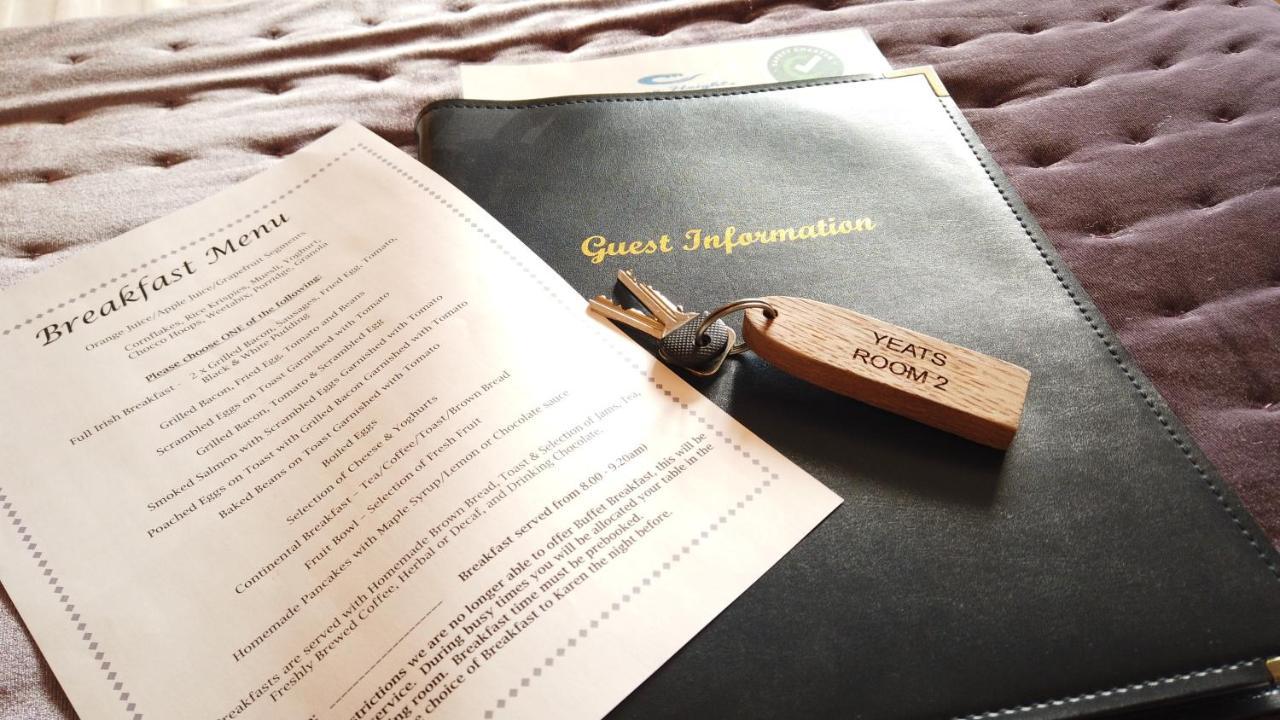 Breakfast Menu
Orange Juice/Apple Juice/Grapefruit Segments
Cornflakes, Rice Krispies, Muesli, Yoghurt,
Chocco Hoops, Weetabix, Porridge, Granola
Please choose ONE of the following:
Full Irish Breakfast - 2 x Grilled Bacon, Sausages, Fried Egg, Tomato,
Black & White Pudding
Grilled Bacon, Fried Egg, Tomato and Beans
Scrambled Eggs on Toast Garnished with Tomato
Grilled Bacon, Tomato & Scrambled Egg
Smoked Salmon with Scrambled Eggs Garnished with Tomato
Poached Eggs on Toast with Grilled Bacon Garnished with Tomato
Baked Beans on Toast Garnished with Tomato
Boiled Eggs
Selection of Cheese & Yoghurts
Continental Breakfast - Tea/Coffee/Toast/Brown Bread
Fruit Bowl - Selection of Fresh Fruit
Homemade Pancakes with Maple Syrup/Lemon or Chocolate sauce
are served with Homemade Brown Bread, Toast & Selection of Jams, Tea,
Freshly Brewed Coffee, Herbal or Decaf, and Drinking Chocolate.
Breakfast served from 8.00 - 9.20am)
we are no longer able to offer Buffet Breakfast, this will be
service. During busy times you will be allocated your table in the
room. Breakfast time must be prebooked.
choice of Breakfast to Karen the night before.
Guest Information
YEATS
ROOM 2